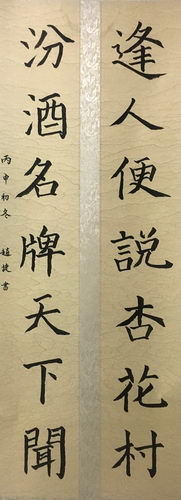 逢人便說杏花村
汾酒名牌天下聞
丙申初冬 趙捷書